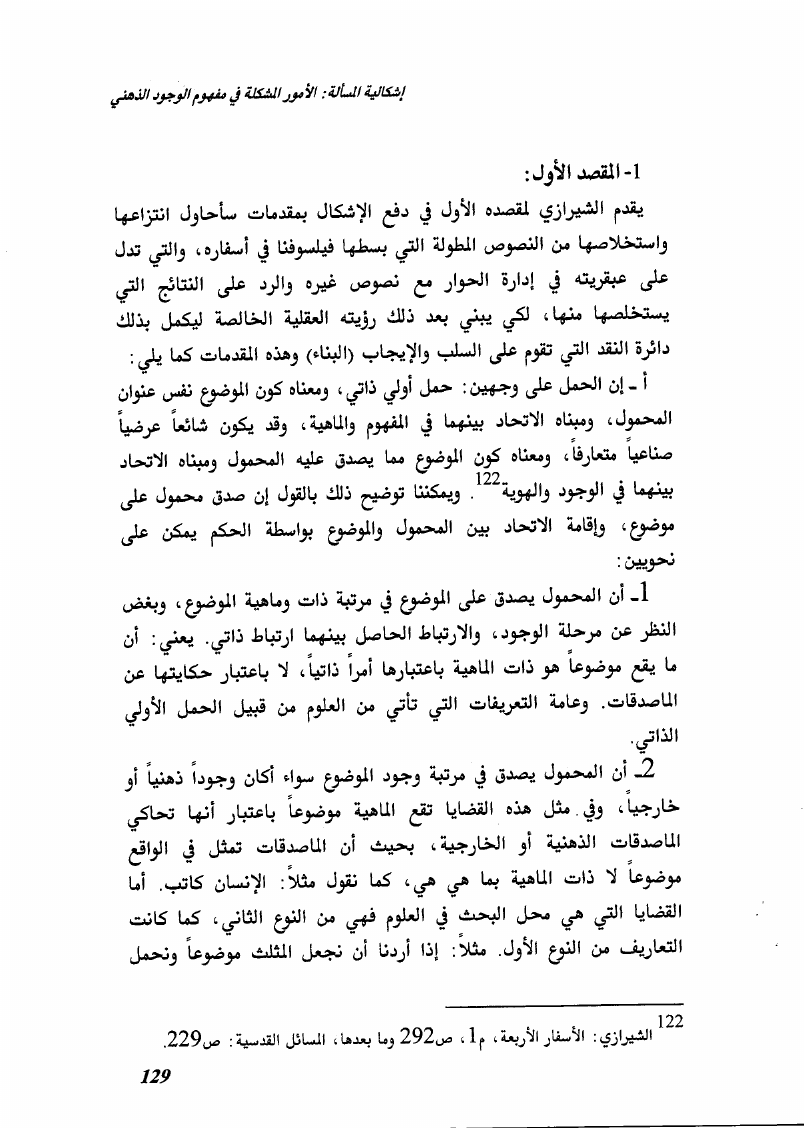 إشكالية المسألة: الأمور المشكلة في مفهوم الوجود الذهني
1- المقصد الأول:
يقدم الشيرازي لمقصده الأول في دفع الإشكال بمقدمات سأحاول انتزاعها
واستخلاصها من النصوص المطولة التي بسطها فيلسوفنا في أسفاره، والتي تدل
على عبقريته في إدارة الحوار مع نصوص غيره والرد على النتائج التي
يستخلصها منها، لكي يبني بعد ذلك رؤيته العقلية الخالصة ليكمل بذلك
دائرة النقد التي تقوم على السلب والإيجاب (البناء) وهذه المقدمات كما يلي:
أ - إن الحمل على وجهين: حمل أولي ذاتي، ومعناه كون الموضوع نفس عنوان
المحمول، ومبناه الاتحاد بينهما في المفهوم والماهية، وقد يكون شائعاً عرضياً
صناعياً متعارفاً، ومعناه كون الموضوع مما يصدق عليه المحمول ومبناه الاتحاد
بينهما في الوجود والهوية122. ويمكننا توضيح ذلك بالقول إن صدق محمول على
موضوع، وإقامة الاتحاد بين المحمول والموضوع بواسطة الحكم يمكن على
نحويين:
1ـ أن المحمول يصدق على الموضوع في مرتبة ذات وماهية الموضوع، وبغض
النظر عن مرحلة الوجود، والارتباط الحاصل بينهما ارتباط ذاتي. يعني: أن
ما يقع موضوعاً هو ذات الماهية باعتبارها أمراً ذاتياً، لا باعتبار حكايتها عن
الماصدقات. وعامة التعريفات التي تأتي من العلوم من قبيل الحمل الأولي
الذاتي.
2ـ أن المحمول يصدق في مرتبة وجود الموضوع سواء أكان وجوداً ذهنياً أو
خارجياً، وفي مثل هذه القضايا تقع الماهية موضوعاً باعتبار أنها تحاكي
الماصدقات الذهنية أو الخارجية، بحيث أن الماصدقات تمثل في الواقع
موضوعاً لا ذات الماهية بما هي هي، كما نقول مثلاً: الإنسان كاتب. أما
القضايا التي هي محل البحث في العلوم فهي من النوع الثاني، كما كانت
التعاريف من النوع الأول. مثلاً: إذا أردنا أن نجعل المثلث موضوعاً ونحمل
122 الشيرازي: الأسفار الأربعة، م1، ص292 وما بعدها، المسائل القدسية: ص229.
129